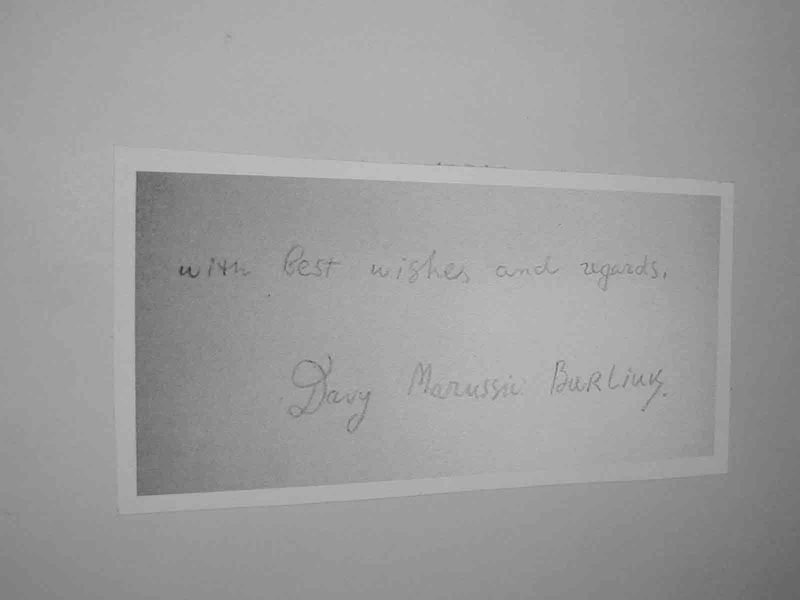 with best wishes and regards.
Davy Marussia Burliuk.